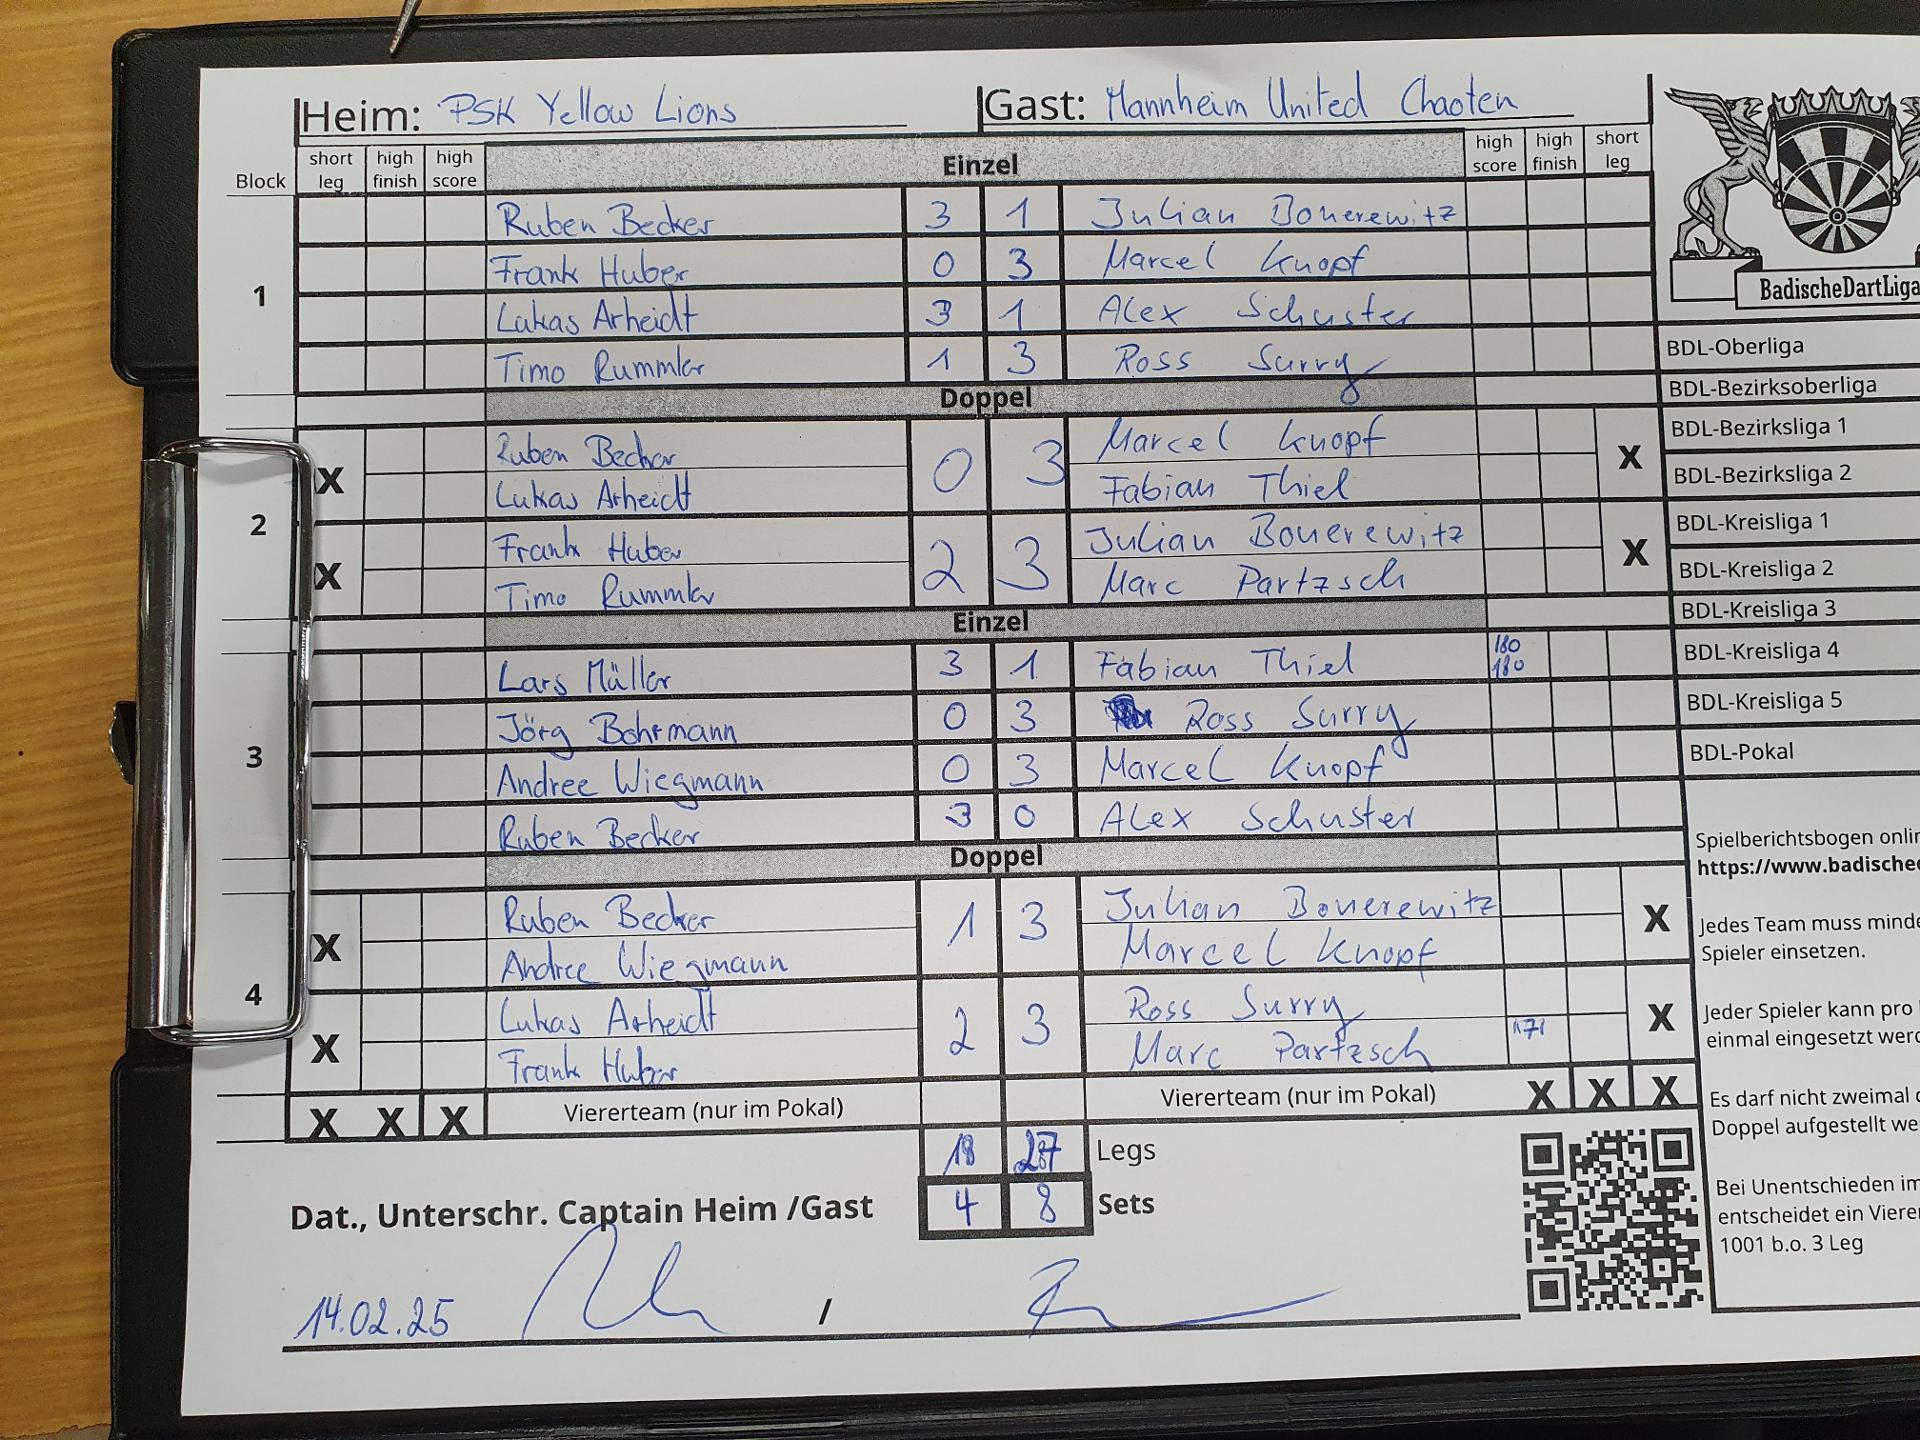 Heim: PSK Yellow Lions Gast: Mannheim United Chaoten
Block short leg high finish high score Einzel high score high finish short leg
1
Ruben Becker 3 1 Julian Bonerewitz
Frank Huber 0 3 Marcel Knopf
Lukas Arheidt 3 1 Alex Schuster
Timo Rummler 1 3 Ross Surry
Doppel
2
X Ruben Becker 0 3 Marcel Knopf X
Lukas Arheidt Fabian Thiel
X Frank Huber 2 3 Julian Bonerewitz X
Timo Rummler Marc Partzsch
Einzel
3
Lars Müller 3 1 Fabian Thiel 180 180
Jörg Bohrmann 0 3 Ross Surry
Andree Wiegmann 0 3 Marcel Knopf
Ruben Becker 3 0 Alex Schuster
Doppel
4
X Ruben Becker 1 3 Julian Bonerewitz X
Andree Wiegmann Marcel Knopf
X Lukas Arheidt 2 3 Ross Surry X
Frank Huber Marc Partzsch 171
X X X Viererteam (nur im Pokal) Viererteam (nur im Pokal) X X X
18 27 Legs
4 8 Sets
Dat., Unterschr. Captain Heim /Gast
14.02.25 /
BadischeDartLiga
BDL-Oberliga
BDL-Bezirksoberliga
BDL-Bezirksliga 1
BDL-Bezirksliga 2
BDL-Kreisliga 1
BDL-Kreisliga 2
BDL-Kreisliga 3
BDL-Kreisliga 4
BDL-Kreisliga 5
BDL-Pokal
Spielberichtsbogen onlin
https://www.badische
Jedes Team muss minde
Spieler einsetzen.
Jeder Spieler kann pro
einmal eingesetzt werd
Es darf nicht zweimal
Doppel aufgestellt we
Bei Unentschieden im
entscheidet ein Vierer
1001 b.o. 3 Leg